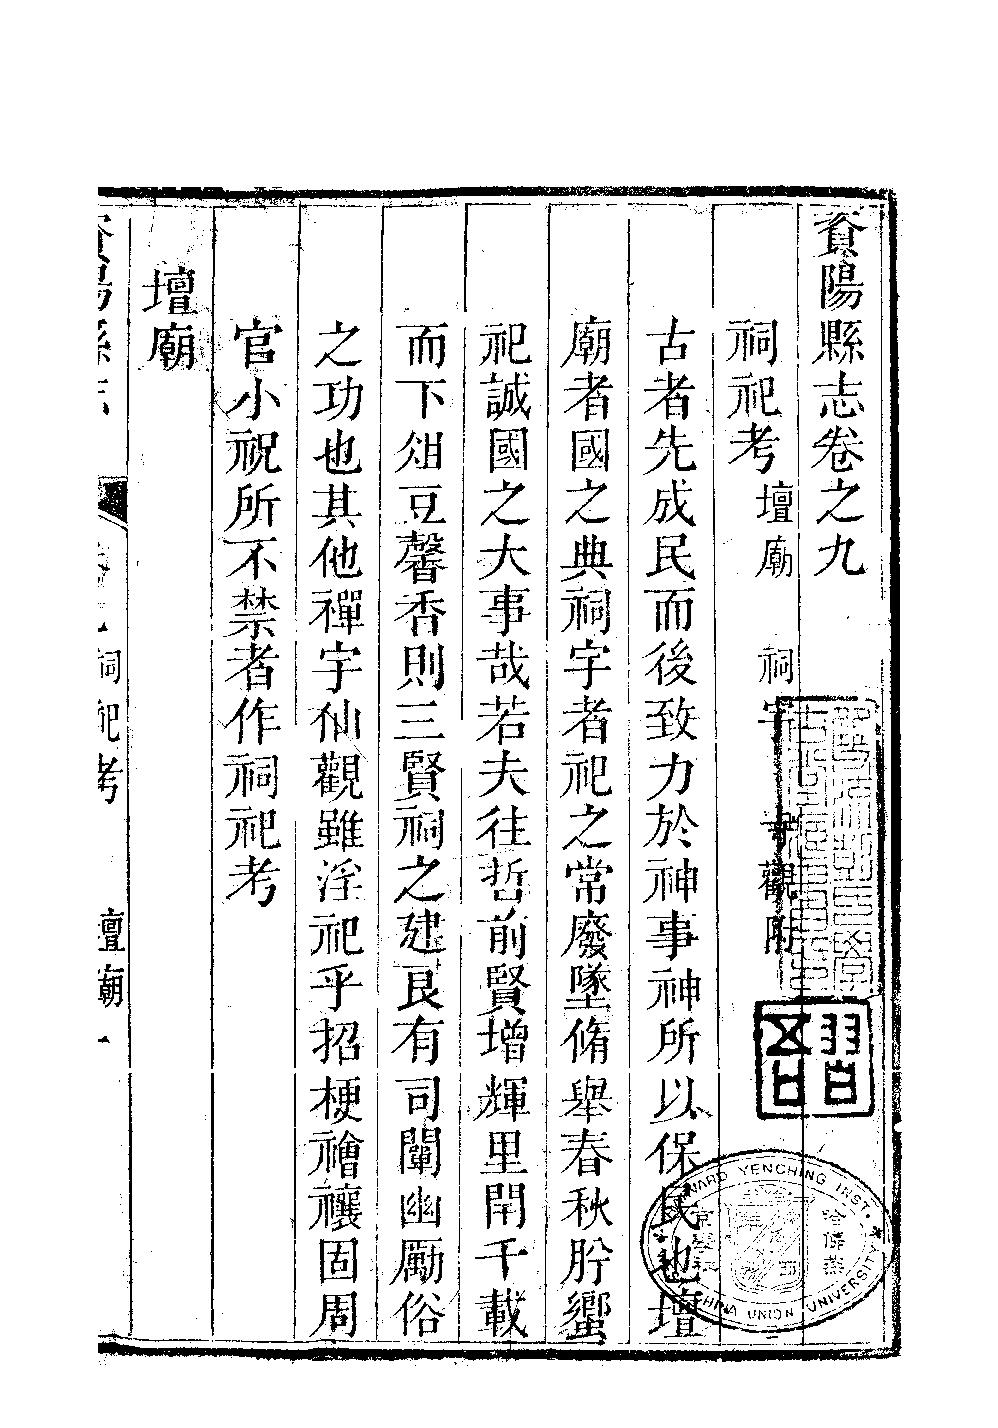 資陽縣志卷之九
祠祀考 壇廟 祠宇 寺觀附
古者先成民而後致力於神事神所以保民也壇
廟者國之典祠宇者祀之常廢墜脩舉春秋肸蠁
祀誠國之大事哉若夫往哲前賢增輝里閈千載
而下俎豆馨香則三賢祠之建良有司闡幽勵俗
之功也其他禪宇仙觀雖淫祀乎招梗禬禳固周
官小祝所不禁者作祠祀考
壇廟
資陽縣志
祠祀考 壇廟 一
HARVARD YENCHING INST.
CHINA UNION UNIVERSITY